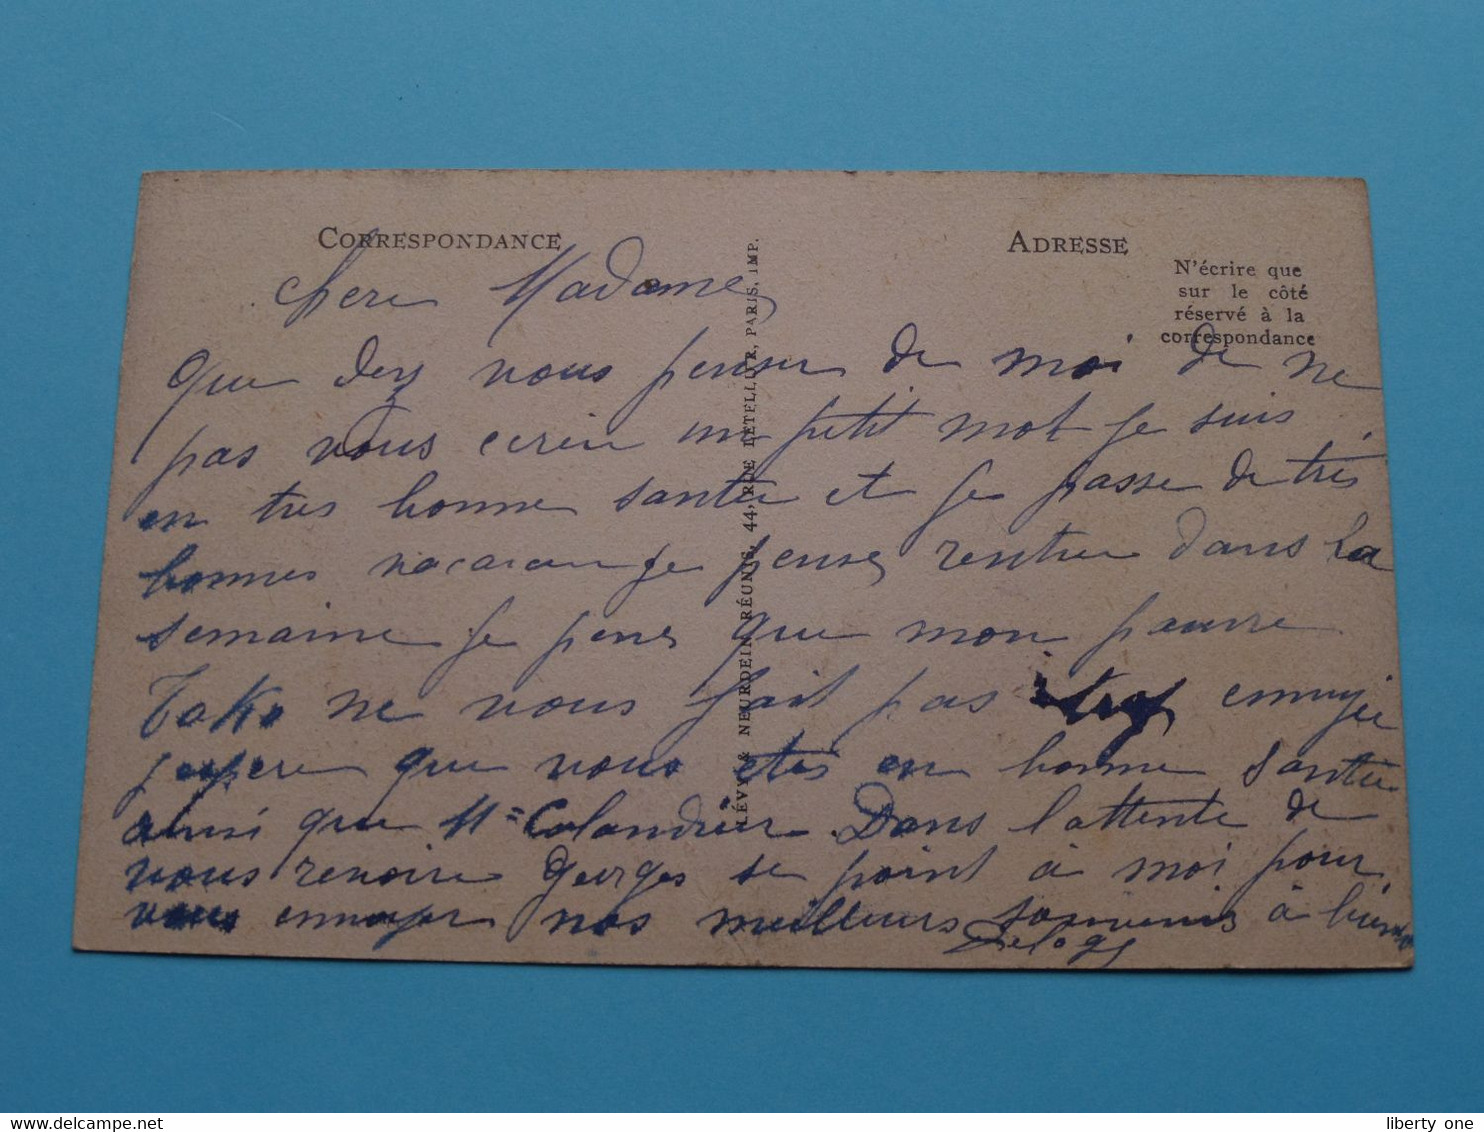 CORRESPONDANCE
ADRESSE
N'écrire que
sur le côté
réservé à la
correspondance
LÉVY & NEURDEIN RÉUNIS, 44, RUE LETELLIER, PARIS, IMP.
chere Madame
que dez vous penser de moi de ne
pas vous ecrire un petit mot je suis
en tres bonne santée et je passe de très
bonnes je penses rentrer dans la
semaine je pens que mon pauvre
Toko ne vous fait pas trop ennuyée
jespere que vous etes en bonne santée
ainsi que Mr Colandrier Dans l'attente de
vous revoire Georges se joint à moi pour
vous envoyer nos meilleurs souvenirs à bientot